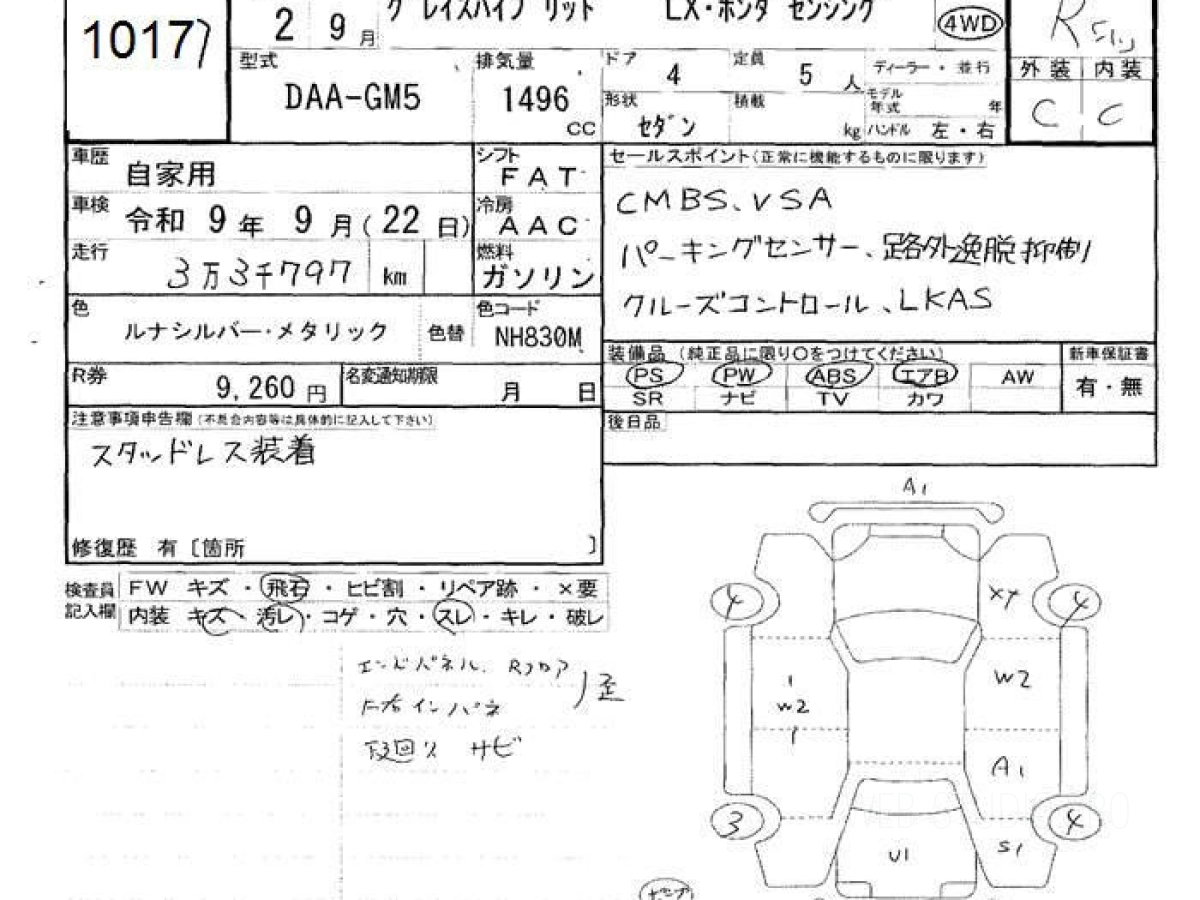 1017
2 9 月 グレイスハイブリット LX・ホンダ センシング 4WD R
型式 DAA-GM5
排気量 1496 CC
ドア 4 定員 5 人
ディーラー・並行
形状 セダン 積載 kg
モデル年式 年
ハンドル 左・右
外装 内装
C C
車歴 自家用
シフト FAT
車検 令和 9 年 9 月 (22 日)
冷房 AAC
走行 3万3千797 km
燃料 ガソリン
色 ルナシルバー・メタリック 色替
色コード NH830M
R券 9,260 円
名変通知期限 月 日
セールスポイント(正常に機能するものに限ります)
CMBS、VSA
パーキングセンサー、路外逸脱抑制
クルーズコントロール、LKAS
装備品 (純正品に限り○をつけてください) 新車保証書
PS PW ABS エアB AW 有・無
SR ナビ TV カワ
後日品
注意事項申告欄(不具合内容等は具体的に記入して下さい)
スタッドレス装着
修復歴 有〔箇所 〕
検査員記入欄
FW キズ・飛石・ヒビ割・リペア跡・×要
内装 キズ・汚レ・コゲ・穴・スレ・キレ・破レ
エンドパネル、Rフロア 歪
インパネ
下回り サビ
A1
4 4
W2 W2
A1
3 4
U1 S1